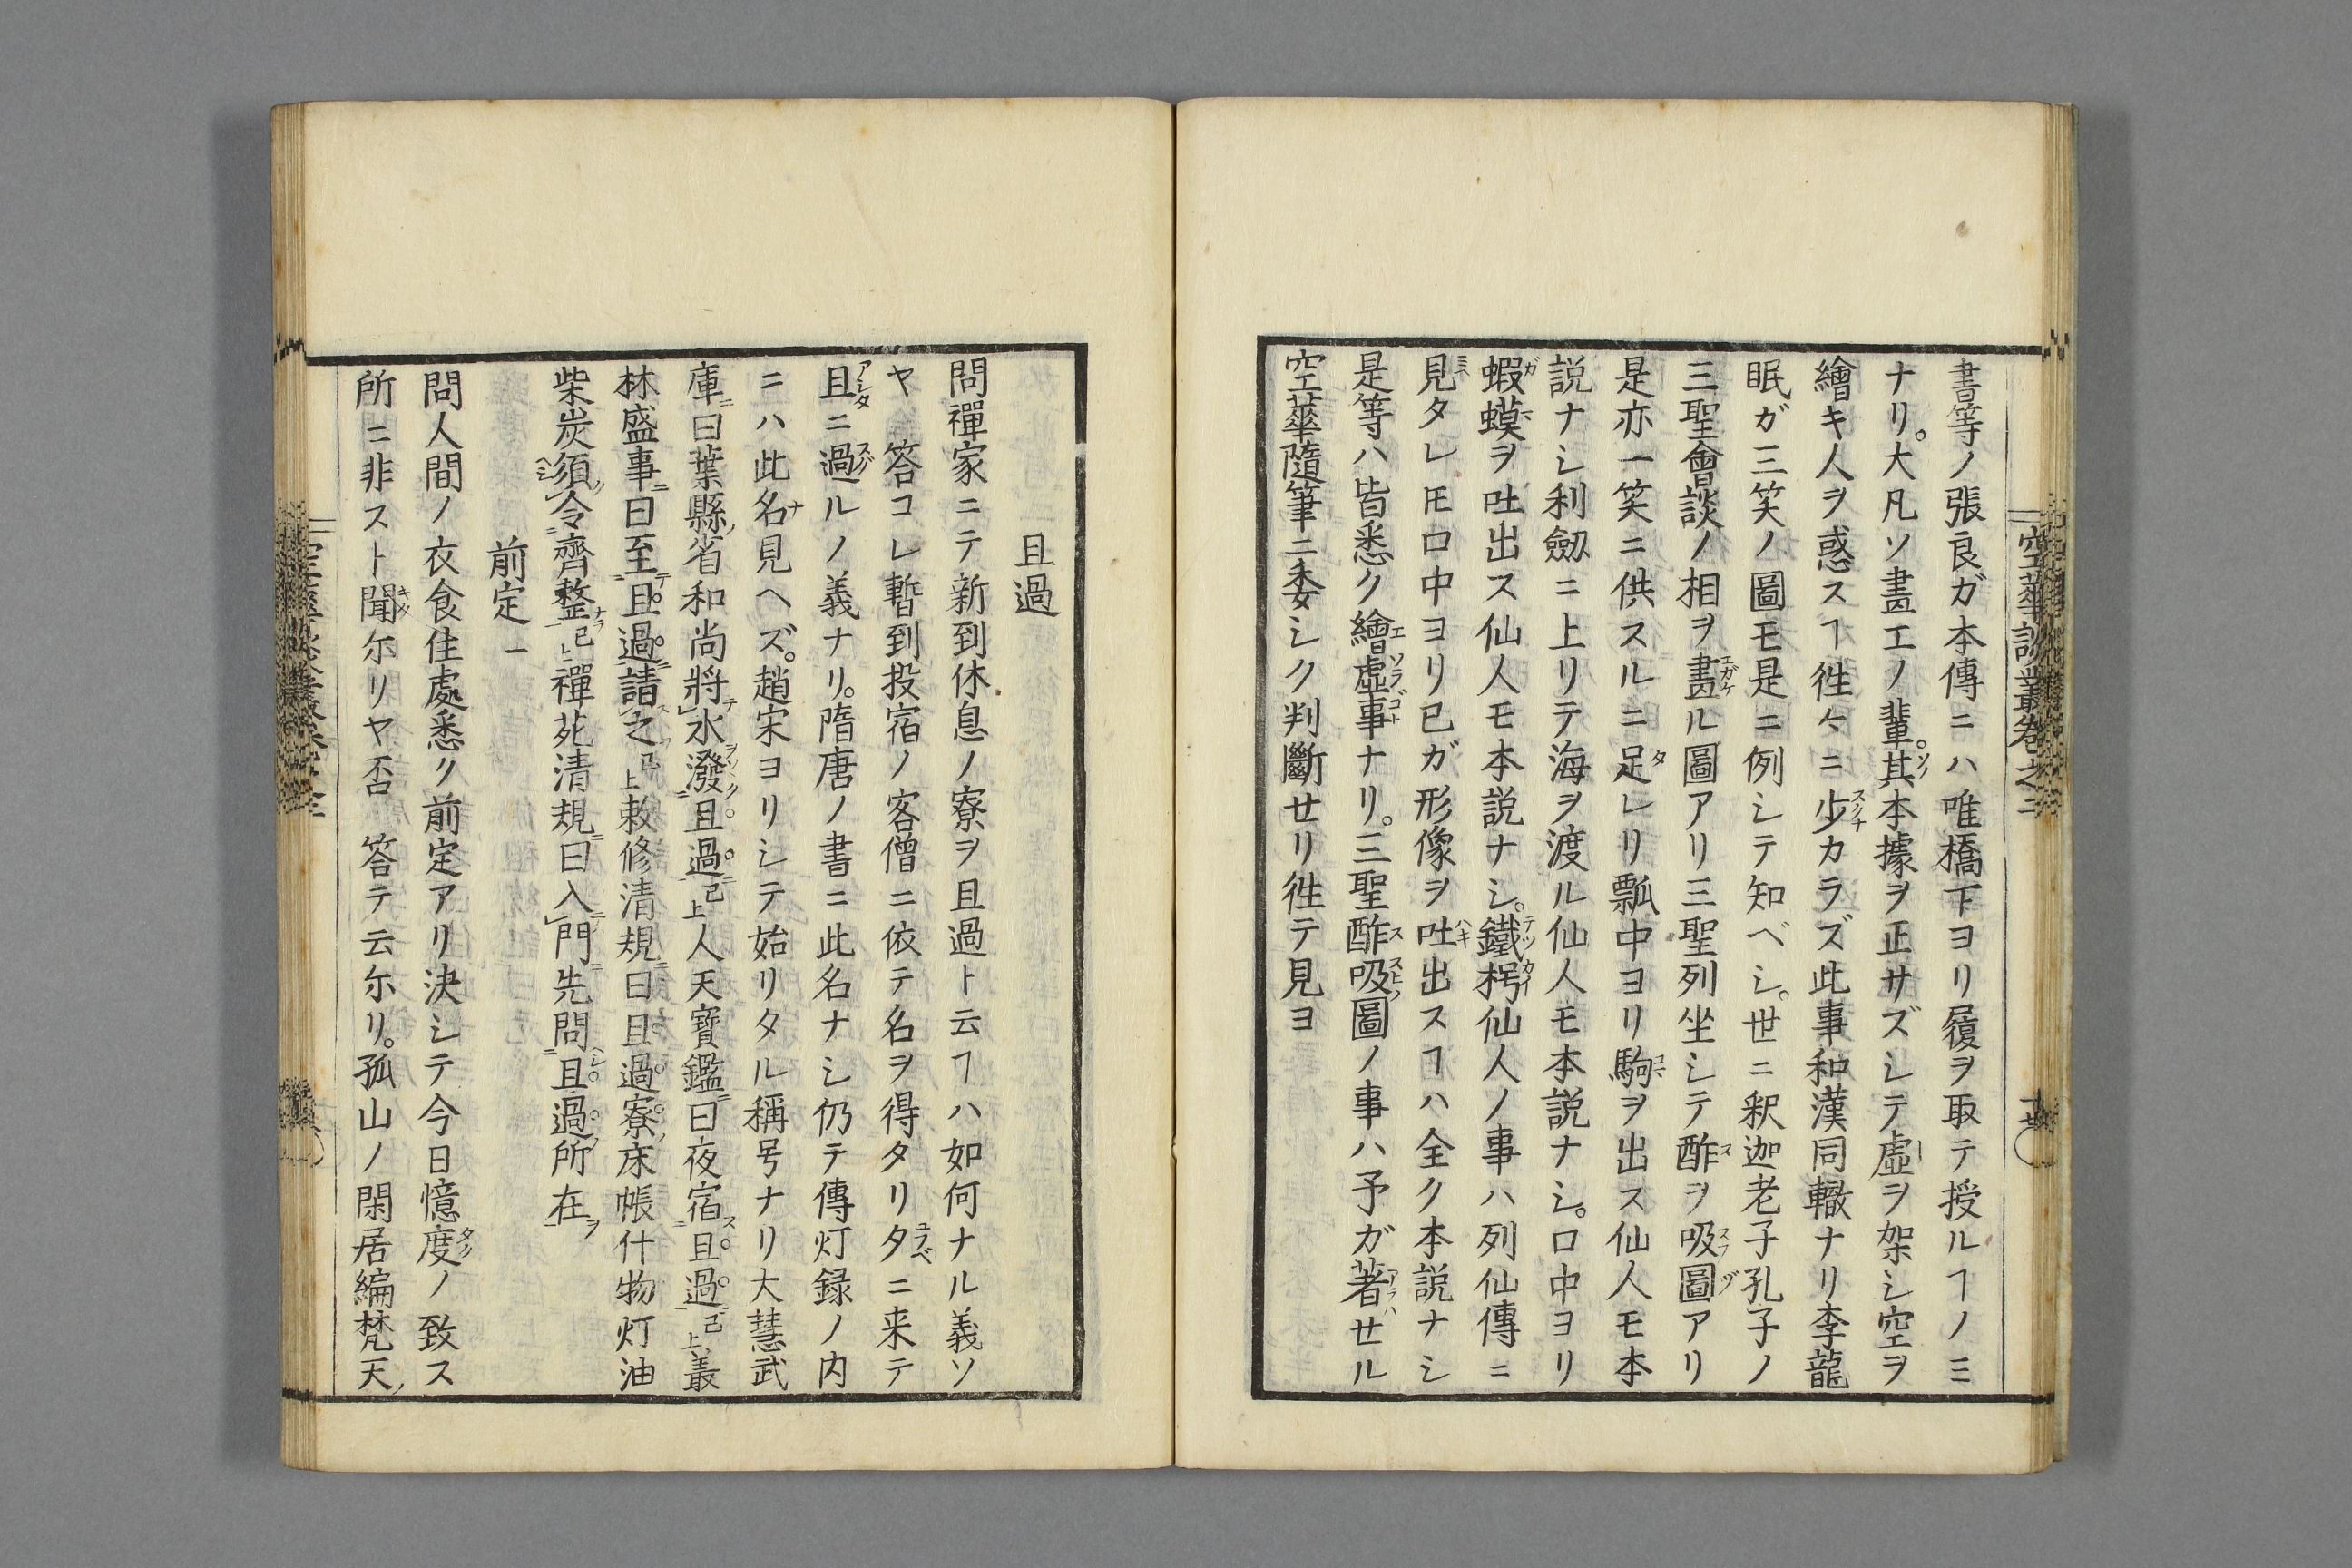 書等ノ張良ガ本傳ニハ唯橋下ヨリ履ヲ取テ授ルヿノミ
ナリ。大凡ソ畫工ノ輩。其本據ヲ正サズシテ虛ヲ架シ空ヲ
繪キ人ヲ惑スヿ徃々ニ少カラズ此事和漢同轍ナリ李龍
眠ガ三笑ノ圖モ是ニ例シテ知ベシ。世ニ釈迦老子孔子ノ
三聖會談ノ相ヲ畫ル圖アリ三聖列坐シテ酢ヲ吸圖アリ
是亦一笑ニ供スルニ足レリ瓢中ヨリ駒ヲ出ス仙人モ本
説ナシ利劔ニ上リテ海ヲ渡ル仙人モ本説ナシ。口中ヨリ
蝦蟆ヲ吐出ス仙人モ本説ナシ。鐵枴仙人ノ事ハ列仙傳ニ
見タレ𪜈口中ヨリ已ガ形像ヲ吐出スヿハ全ク本説ナシ
是等ハ皆悉ク繪虛事ナリ。三聖酢吸圖ノ事ハ予ガ著セル
空華隨筆ニ委シク判斷せリ徃テ見ヨ
且過
問禪家ニテ新到休息ノ寮ヲ且過ト云ヿハ如何ナル義ソ
ヤ 答コレ暫到投宿ノ客僧ニ依テ名ヲ得タリ夕ニ来テ
且ニ過ルノ義ナリ。隋唐ノ書ニ此名ナシ仍テ傳灯録ノ内
ニハ此名見ヘズ。趙宋ヨリシテ始リタル稱号ナリ大慧武
庫曰葉縣省和尚將水潑且過已上人天寶鑑曰夜宿且過已上叢
林盛事曰至且過請之已上敕修清規曰且過寮床帳什物灯油
柴炭須令齊整已上禪苑清規曰入門先問且過所在
前定一
問人間ノ衣食住處悉ク前定アリ決シテ今日憶度ノ致ス
所ニ非スト聞尓リヤ否 答テ云尓リ。孤山ノ閑居編梵天
空華談叢卷之二